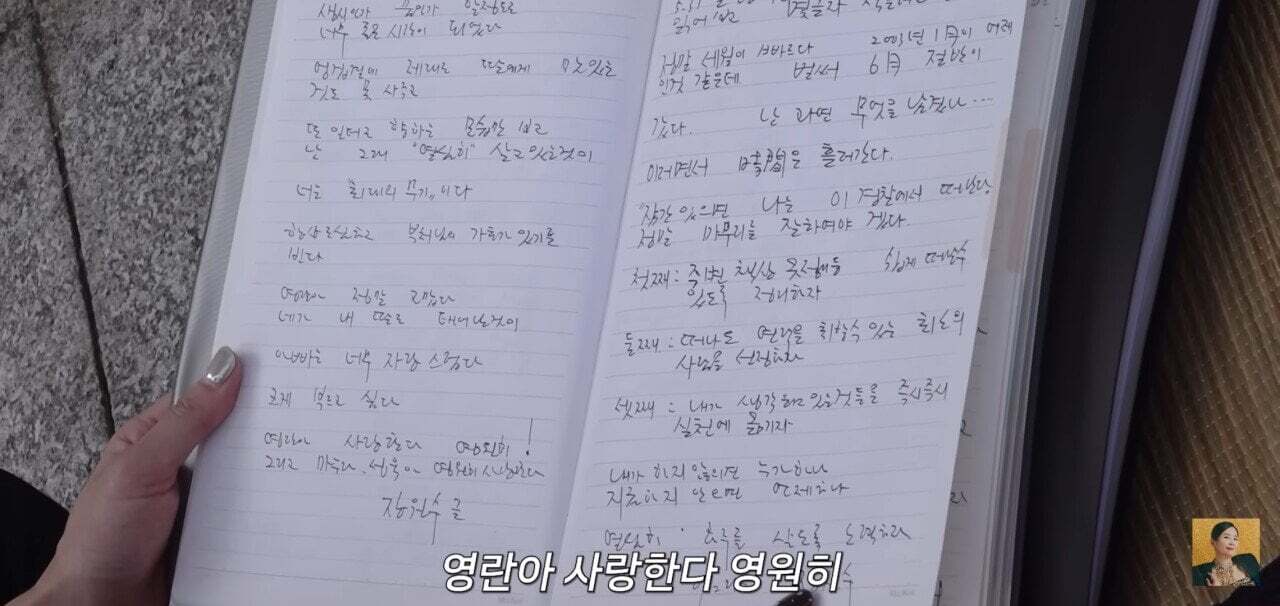 너무 짧은 시간이 되었다
엉겁결에 제대로 딸에게 맛있는
것도 못 사주고
또 일터로 향하는 모습만 보고
난 그래 "열심히" 살고 있는 것이
너는 최대의 무기 이다
항상 부처님의 가호가 있기를
빈다
영란아 정말 고맙다
네가 내 딸로 태어난것이
아빠는 너무 자랑 스럽다
크게 부르고 싶다
영란아 사랑한다 영원히!
그리고 영원히 사랑한다
장원수 글
읽어
정말 세월이 빠르다 2003년 1月이 어제
인것 같은데 벌써 6月 절반이
갔다. 난 과연 무엇을 남겼나...
이러면서 時間은 흘러간다.
잠간 있으면 나는 이 경찰에서 떠난다
정말 마무리를 잘하여야 겠다.
첫째: 주변 책상 쉽게 떠날수
있도록 정리하자
둘째: 떠나도 연락을 취할수 있는 최소의
사람을 선정하자
셋째: 내가 생각하고 있는것들을 즉시즉시
실천에 옮기자
내가 하지 않으면 누가하나
지금하지 않으면 언제하나
열심히 하루를 살도록 노력하라
영란아 사랑한다 영원히